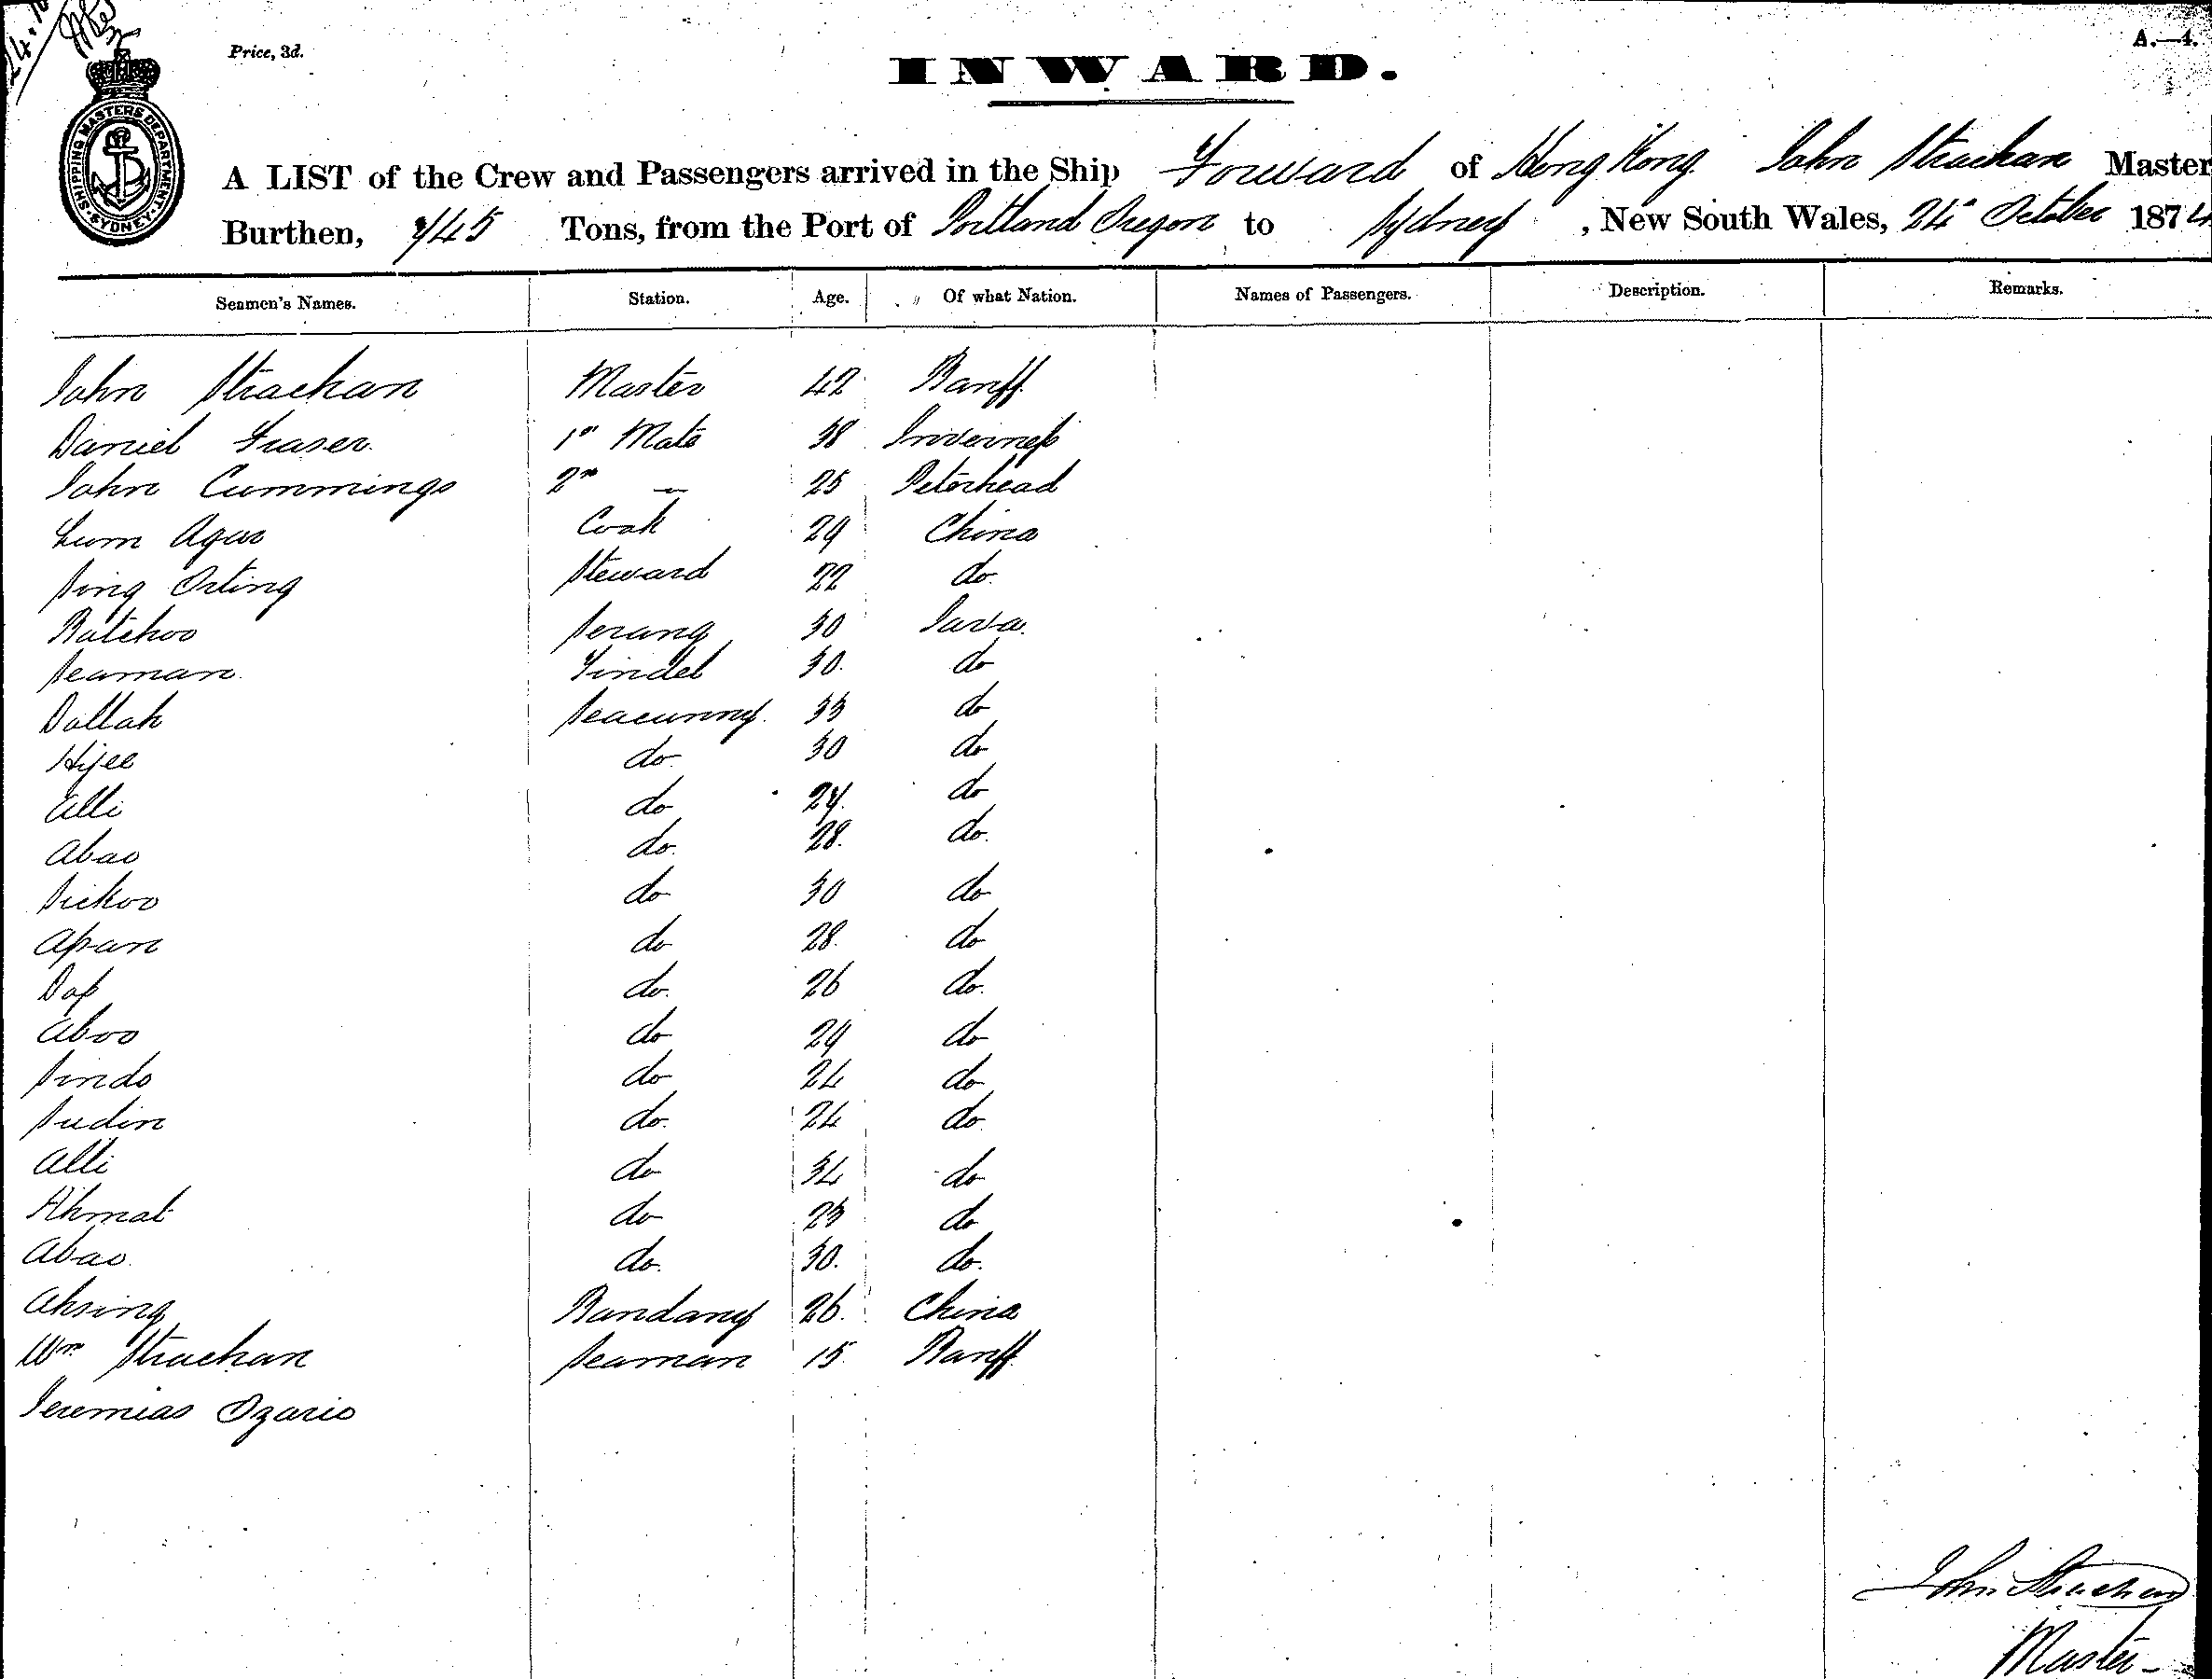 Price, 3d.
A.—4.
INWARD.
SHIPPING MASTERS DEPARTMENT SYDNEY
A LIST of the Crew and Passengers arrived in the Ship Forward of Hong Kong. John Strachan Master
Burthen, 745 Tons, from the Port of Portland Oregon to Sydney, New South Wales, 24 October 1874
Seamen's Names. Station. Age. Of what Nation. Names of Passengers. Description. Remarks.
John Strachan Master 42 Banff.
Daniel Fraser. 1st Mate 38 Inverness
John Cummings 2nd — 25 Peterhead
Lum Agar Cook 29 China
Sing Orting Steward 22 do.
Batchoo Serang 30 Java.
Seaman. Tindel 30. do
Dollah Seacunny. 33 do
Hijee do. 30 do
Alli do 24. do
Abao do. 28. do.
Sickoo do 30 do
Apan do 28. do
Dop do. 26 do.
Aboo do 29 do
Sindo do 24 do
Sudin do. 24 do.
Alli do 34 do
Ahmat do 23 do
Abao. do. 30. do.
Ahsing Bandany 26. China
Wm Strachan Seaman 15. Banff.
Jeremias Ozario
John Strachan
Master